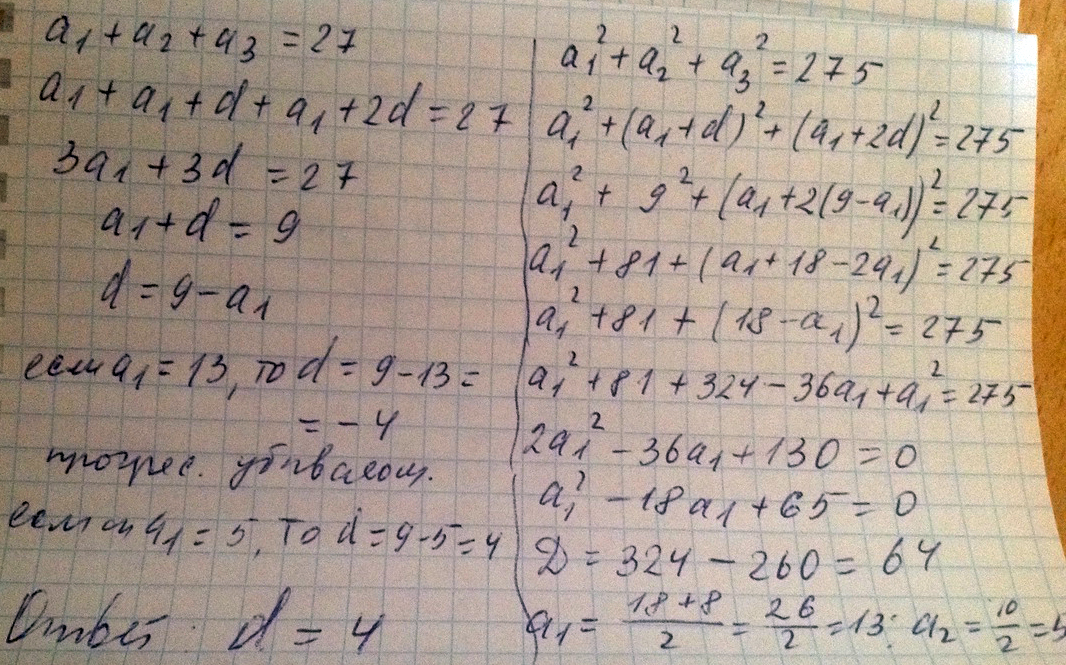 a₁ + a₂ + a₃ = 27
a₁ + a₁ + d + a₁ + 2d = 27
3a₁ + 3d = 27
a₁ + d = 9
d = 9 - a₁
если a₁ = 13, то d = 9 - 13 =
= - 4
прогрес. убывающ.
если a₁ = 5, то d = 9 - 5 = 4
Ответ: d = 4
a₁² + a₂² + a₃² = 275
a₁² + (a₁ + d)² + (a₁ + 2d)² = 275
a₁² + 9² + (a₁ + 2(9 - a₁))² = 275
a₁² + 81 + (a₁ + 18 - 2a₁)² = 275
a₁² + 81 + (18 - a₁)² = 275
a₁² + 81 + 324 - 36a₁ + a₁² = 275
2a₁² - 36a₁ + 130 = 0
a₁² - 18a₁ + 65 = 0
D = 324 - 260 = 64
a₁ = (18 + 8)/2 = 26/2 = 13; a₂ = 10/2 = 5